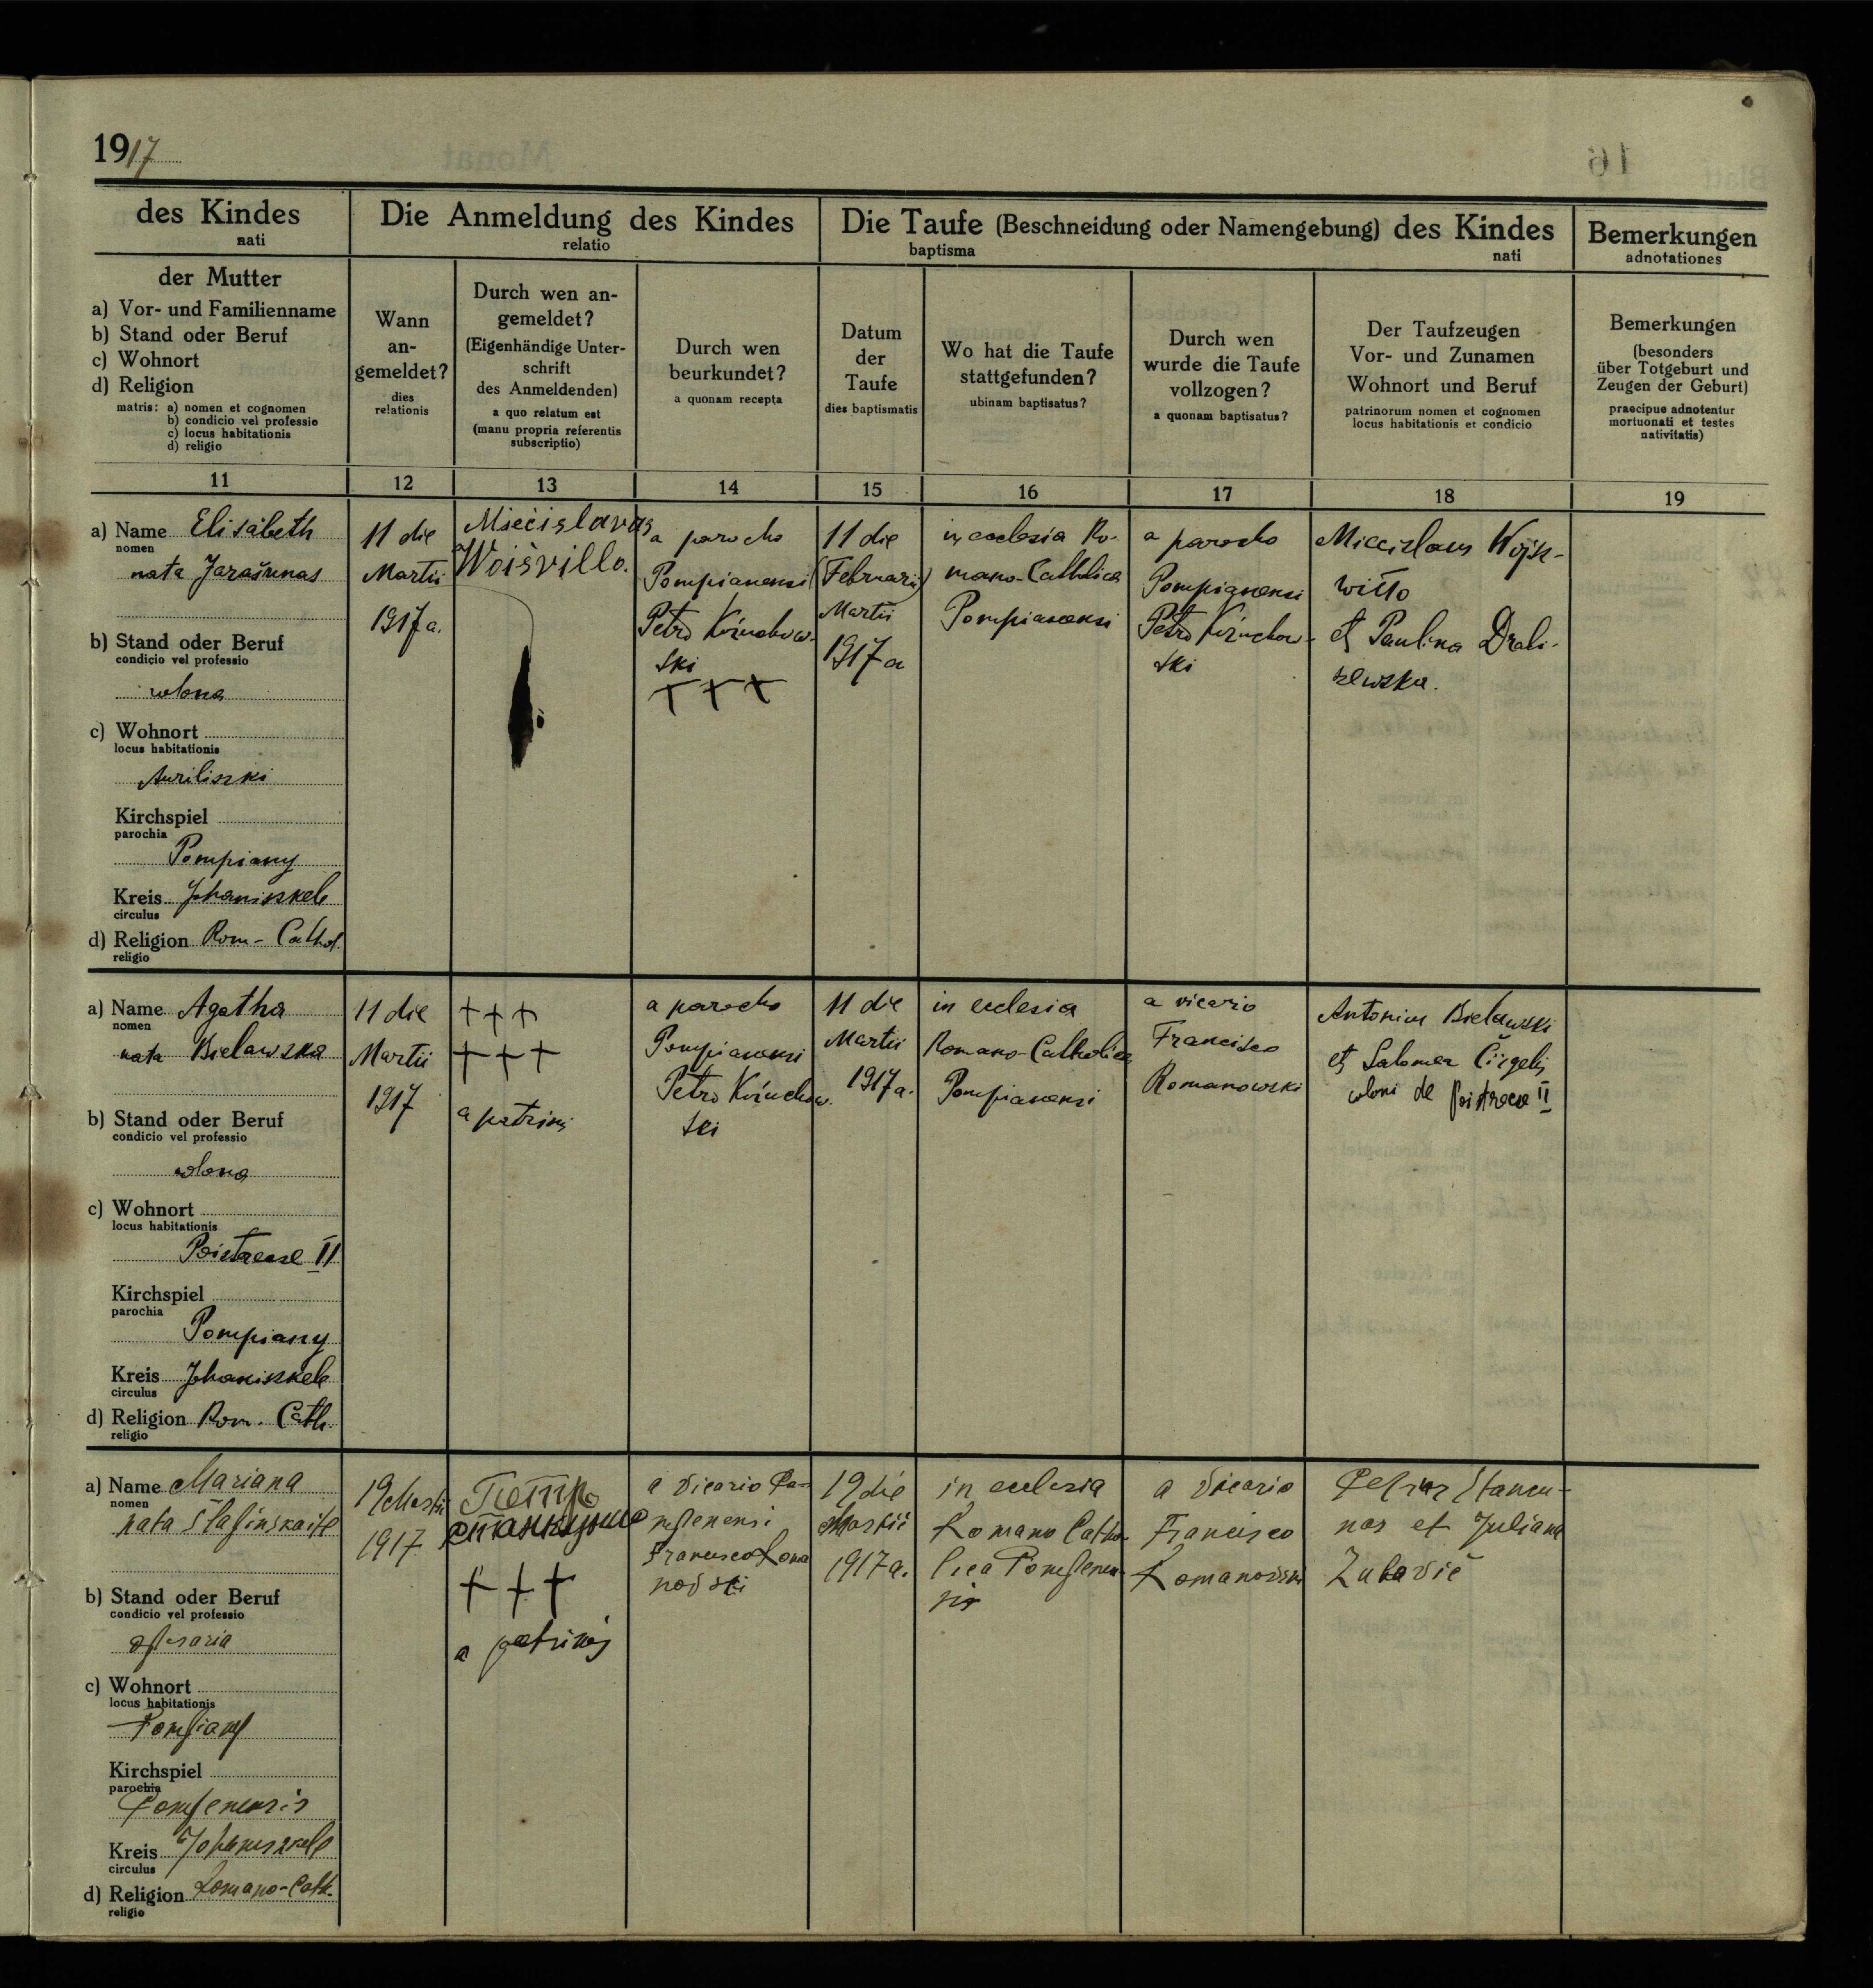 1917
des Kindes
nati
Die Anmeldung des Kindes
relatio
Die Taufe (Beschneidung oder Namengebung) des Kindes
baptisma
nati
Bemerkungen
adnotationes
der Mutter
a) Vor- und Familienname
b) Stand oder Beruf
c) Wohnort
d) Religion
matris: a) nomen et cognomen
b) condicio vel professio
c) locus habitationis
d) religio
Wann
an-
gemeldet?
dies
relationis
Durch wen an-
gemeldet?
(Eigenhändige Unter-
schrift
des Anmeldenden)
a quo relatum est
(manu propria referentis
subscriptio)
Durch wen
beurkundet?
a quonam recepta
Datum
der
Taufe
dies baptismatis
Wo hat die Taufe
stattgefunden?
ubinam baptisatus?
Durch wen
wurde die Taufe
vollzogen?
a quonam baptisatus?
Der Taufzeugen
Vor- und Zunamen
Wohnort und Beruf
patrinorum nomen et cognomen
locus habitationis et condicio
Bemerkungen
(besonders
über Totgeburt und
Zeugen der Geburt)
praecipue adnotentur
mortuonati et testes
nativitatis)
11
12
13
14
15
16
17
18
19
a) Name Elisabeth
nomen
nata Jarašunas
b) Stand oder Beruf
condicio vel professio
colona
c) Wohnort
locus habitationis
Kirchspiel
parochia
Pompiany
Kreis Johaniszkele
circulus
d) Religion Rom- Cathol.
religio
11 die
Martii
1917 a.
Miečislavas
Woišvillo.
a parocho
Pompianensi
Petro
ski
+++
11 die
(Februarii)
Martii
1917 a
in ecclesia Ro-
mano-Catholica
Pompianensi
a parocho
Pompianensi
Petro
ski
Miecislaus Wojsz-
wiłło
et Paulina
a) Name Agatha
nomen
nata Bielawska
b) Stand oder Beruf
condicio vel professio
colona
c) Wohnort
locus habitationis
II
Kirchspiel
parochia
Pompiany
Kreis Johaniszkele
circulus
d) Religion Rom. Cath.
religio
11 die
Martii
1917
+++
+++
a patrinis
a parocho
Pompianensi
Petro
ski
11 die
Martii
1917 a.
in ecclesia
Romano-Catholica
Pompianensi
a vicario
Francisco
Romanowski
Antonius Bielawski
et Salomea
coloni de II
a) Name Mariana
nomen
nata
b) Stand oder Beruf
condicio vel professio
c) Wohnort
locus habitationis
Kirchspiel
parochia
Kreis
circulus
d) Religion Romano-Cath.
religio
19 Martii
1917
Петр
+++
a patrinis
a vicario
Francisco Roma
19 die
Martii
1917 a.
in ecclesia
Romano Catho-
lica
a vicario
Francisco
Romanovski
et Juliana